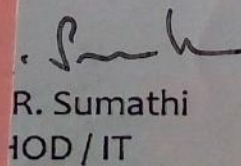 R. Sumathi
HOD / IT